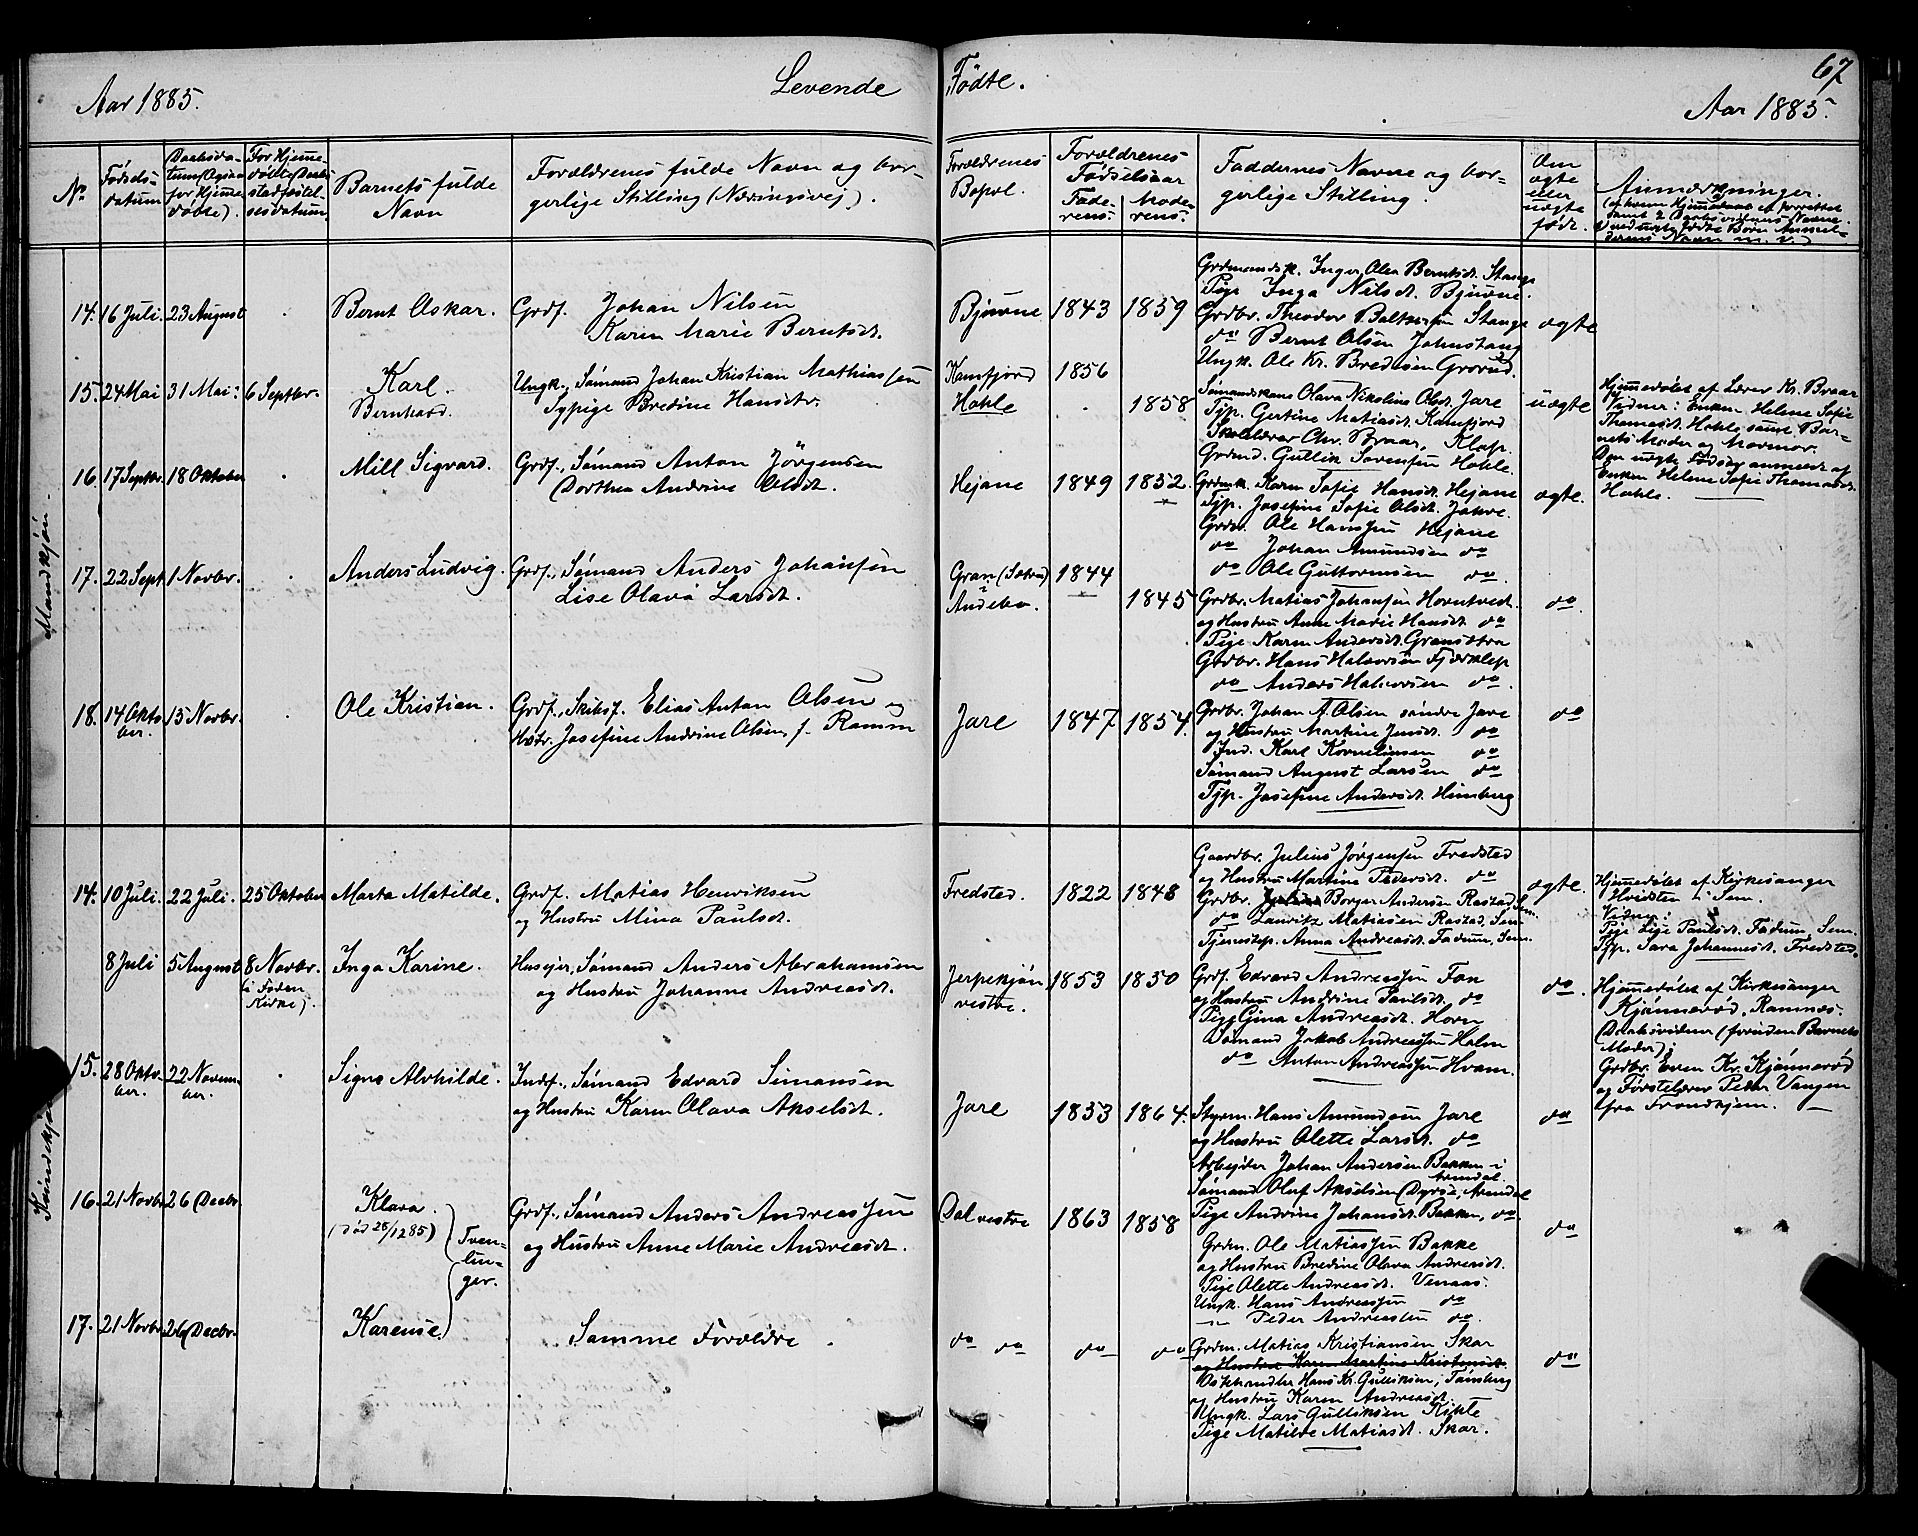 Levende Födte.
67
Aar 1885.
Aar 1885.
No
Fødsels-
datum
Daabsda-
tum (Ogsaa
for Hjemme
døbte).
For Hjemme-
døbte Daabs
stadfæstel-
sesdatum
Barnets fulde
Navn
Forældrenes fulde Navn og bor-
gerlige Stilling (Næringsvej).
Forældrenes
Bopæl.
Forældrenes
Fødselsaar
Fade-
rens.
Mode-
rens.
Faddernes Navne og bor-
gerlige Stilling.
Om
ægte
eller
uægte
født.
Anmærkninger.
Mandkjøn.
14. 16 Juli. 23 August
Bernt Oskar.
Grdf. Johan Nilsen
Karen Marie Berntsdt.
Bjuøne 1843 1859
Grdmandsk. Inger Olea Berntsdt. Stange
Pige Inga Nilsdt. Bjuøne.
Grdbr. Theodor Baltsersen Stange
do Bernt Olsen Jahnstang
Ungk. Ole Kr. Bredesen Grorud.
ægte
15. 24 Mai 31 Mai: 6 Septbr.
Karl
Bernhard.
Ungk., Sømand Johan Kristian Mathiassen
Sypige Bredine Hansdtr.
Kamfjord 1856
Hahle 1858
Sømandskone Olava Nikoline Olsdt. Jare
Tjp. Gertine Matiasdt. Kamfjord
Skolelærer Chr. Braar, Klop.
Grdmd. Gullik Sørensen Hahle.
uægte
Hjemmedøbt af Lærer Kr. Braar
Vidner: Enken Helene Sofie
Thomasdt. Hahle samt Bar-
nets Moder og Mormor.
Den uægte Fødsel anmeldt af
Enken Helene Sofie Thomasdt.
Hahle.
16. 17 Septbr. 18 Oktober
Mill Sigvard.
Grdf., Sømand Anton Jörgensen
Dorthea Andrine Olsdt.
Hejane 1849 1852.
Grdmk. Karen Sofie Hansdt. Hejane
Tjp. Josefine Sofie Olsdt. Jahre.
Grdm. Ole Hanssen Hejane
do Johan Amundsen do
do Ole Guttormsen do.
ægte.
17. 22 Sept. 1 Novbr.
Anders Ludvig.
Grdf., Sømand Anders Johansen
Lise Olava Larsdt.
Gran (Sætra) 1844
i
Andebu. 1845
Grdbr. Matias Johansen Horntvedt.
og Hustru Anne Marie Hansdt. do
Pige Karen Andersdt. Gransætra
Grdbr. Hans Halvorsen Fjærklep
do Anders Halvorsen do.
do.
18. 14 Okto
ber. 15 Novbr.
Ole Kristian.
Grdf., Skibsf. Elias Anton Olsen og
Hstr. Josefine Andrine Olsen f. Ramm
Jare 1847 1854.
Grdbr. Johan A. Olsen søndre Jare
og Hustru Martine Jensdt. do
Ind. Karl Kornelinsen do
Sømand August Larsen do
Tjp. Josefine Andersdt. Himberg
do
Kvindekjøn
14. 10 Juli. 22 Juli. 25 Oktober
Marta Matilde.
Grdf. Matias Henriksen
og Hustru Mina Paulsdt.
Fredsted. 1822 1848
Gaardbr. Julius Jørgensen Fredsted
og Hustru Martine Pedersdt. do
Grdbr. Borger Andersen Rastad, Sem.
do Lauritz Matiasen Rastad, Sem
Tjenestep. Anna Andreasdt. Fadum, Sem.
ægte.
Hjemmedøbt af Kirkesanger
Hvidsten i Sem.
Vidner:
Pige Lise Paulsdt. Fadum, Sem.
Tjp. Sara Johannesdt. Fredsted.
8 Juli 5 August 8 Novbr.
i Foden
Kirke).
Inga Karine.
Husejer, Sømand Anders Abrahamsen
og Hustru Johanne Andreasdt.
Jerpekjøn
vestre. 1853 1850
Grdf. Edvard Andreassen Fon
og Hustru Andrine Paulsdt. do
Pige Gina Andreasdt. Horn
Sømand Jakob Andreassen Holm
do Anton Andreassen Hvam.
do.
Hjemmedøbt af Kirkesanger
Kjønnerød, Ramnes.
Daabsvidner (foruden Barnets
Moder):
Grdbr. Even Kr. Kjønnerød
og Førstelærer Peder Vangen
fra Trondhjem.
15. 28 Oktr.
ber. 22 Novem-
ber.
Signe Alvhilde.
Indf., Sømand Edvard Simansen
og Hustru Karen Olava Akselsdt.
Jare 1853 1864.
Styrm. Hans Amundsen Jare
og Hustru Olette Larsdt. do
Arbejder Johan Andersen Bakken i
Arendal
Sømand Oluf Akselsen (Dyrsø, Arendal
Pige Andrine Johansdt. Bakken, do.
do
16. 21 Novbr. 26 Decbr.
Klara.
(død 28/12 85)
Tven-
lin-
ger.
Grdf., Sømand Anders Andreassen
og Hustru Anne Marie Andreasdt.
Dal vestre 1863 1858
Grdm. Ole Matiassen Bakke
og Hustru Bredine Olava Andreasdt.
Pige Olette Andreasdt. Venaas.
Ungk. Hans Andreassen do
Peder Andreassen do.
do
17. 21 Novbr. 26 Decbr.
Karense.
Samme Forældre.
do do do do
Grdm. Matias Kristiansen Skar
og Hustru Karen Martine Kristensdt.
Hans Kr. Gulliksen, Tønsberg
og Hustru Karen Andreasdt.
Ungk. Lars Gulliksen Kihle
Pige Matilde Matiasdt. Skar.
do